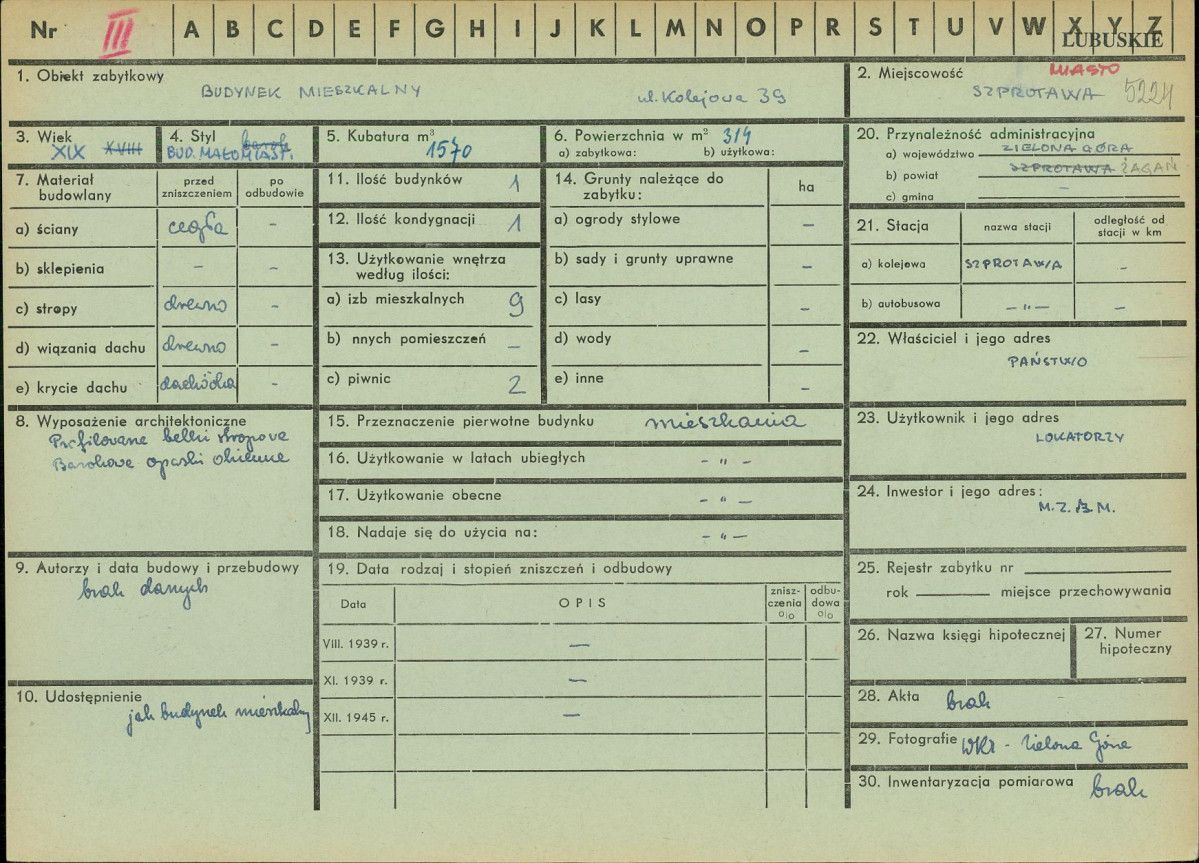 Nr III A B C D E F G H I J K L M N O P R S T U V W X Y Z
LUBUSKIE
1. Obiekt zabytkowy
BUDYNEK MIESZKALNY ul. Kolejowa 39
2. Miejscowość MIASTO
SZPROTAWA 5224
3. Wiek
XIX XVIII
4. Styl barok
BUD. MAŁOMIAST.
5. Kubatura m³
1570
6. Powierzchnia w m² 314
a) zabytkowa: b) użytkowa:
20. Przynależność administracyjna
a) województwo ZIELONA GÓRA
b) powiat SZPROTAWA ŻAGAŃ
c) gmina –
7. Materiał budowlany
przed zniszczeniem
po odbudowie
a) ściany cegła –
b) sklepienia – –
c) stropy drewno –
d) wiązania dachu drewno –
e) krycie dachu dachówka –
11. Ilość budynków 1
12. Ilość kondygnacji 1
13. Użytkowanie wnętrza
według ilości:
a) izb mieszkalnych 9
b) nnych pomieszczeń –
c) piwnic 2
14. Grunty należące do
zabytku:
ha
a) ogrody stylowe –
b) sady i grunty uprawne –
c) lasy –
d) wody –
e) inne –
21. Stacja
nazwa stacji
odległość od
stacji w km
a) kolejowa SZPROTAWA –
b) autobusowa –„– –
22. Właściciel i jego adres
PAŃSTWO
8. Wyposażenie architektoniczne
Profilowane belki stropowe
Barokowe opaski okienne
15. Przeznaczenie pierwotne budynku mieszkania
16. Użytkowanie w latach ubiegłych – „ –
17. Użytkowanie obecne – „ –
18. Nadaje się do użycia na: – „ –
23. Użytkownik i jego adres
LOKATORZY
24. Inwestor i jego adres:
M.Z.B.M.
9. Autorzy i data budowy i przebudowy
brak danych
19. Data rodzaj i stopień zniszczeń i odbudowy
Data
OPIS
znisz-
czenia
o/o
odbu-
dowa
o/o
VIII. 1939 r. –
XI. 1939 r. –
XII. 1945 r. –
25. Rejestr zabytku nr
rok miejsce przechowywania
26. Nazwa księgi hipotecznej
27. Numer
hipoteczny
10. Udostępnienie
jak budynek mieszkalny
28. Akta brak
29. Fotografie WKZ - Zielona Góra
30. Inwentaryzacja pomiarowa brak